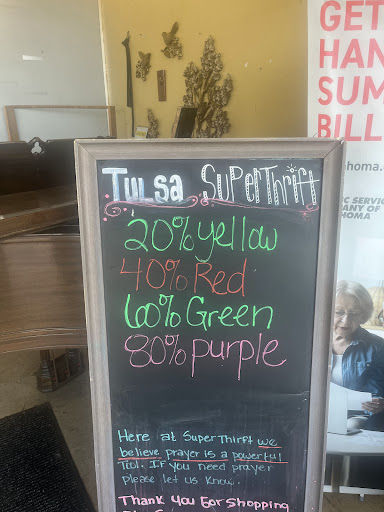 Tulsa SuperThrift
20% yellow
40% Red
60% Green
80% purple
Here at SuperThirft we
believe prayer is a powerful
Tool. IF you need prayer
please let us know.
Thank you For shopping
GET
HAN
SUM
BILL
-homa.
C SERVIC
ANY OF
HOMA